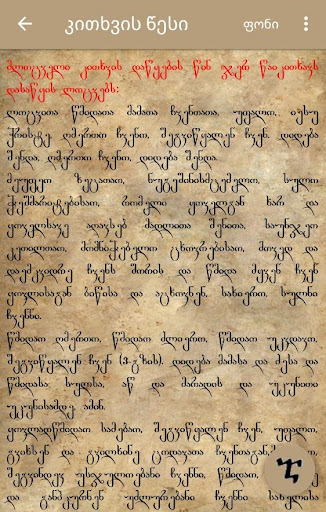 კითხვის წესი
ფონი
მლოცველი კითხვის დაწყების წინ ჯერ წაიკითხავს
დასაწყის ლოცვებს:
ლოცვითა წმიდათა მამათა ჩვენთათა, უფალო, იესუ
ქრისტე, ღმერთო ჩვენო, შეგვიწყალენ ჩვენ. დიდება
შენდა, ღმერთო ჩვენო, დიდება შენდა.
მეუფეო ზეცათაო, ნუგეშინისმცემელო, სულო
ჭეშმარიტებისაო, რომელი ყოველგან ხარ და
ყოველსავე აღავსებ მადლითა შენითა, საუნჯეო
კეთილთაო, მიმნიჭებელო ცხოვრებისაო, მოვედ და
დაემკვიდრე ჩვენს შორის და წმიდა მყვენ ჩვენ
ყოვლისაგან ბიწისა და აცხოვნენ, სახიერ, სულნი
ჩვენნი.
წმიდაო ღმერთო, წმიდაო ძლიერო, წმიდაო უკვდავო,
შეგვიწყალენ ჩვენ (3-გზის). დიდება მამასა და ძესა და
წმიდასა სულსა, აწ და მარადის და უკუნითი
უკუნისამდე ამინ.
ყოვლადწმიდაო სამებაო, შეგვიწყალენ ჩვენ, უფალო,
გვიხსენ და გვილხინე ცოდვათა ჩვენთაგან,
შეგვინდვე უსჯულოებანი ჩვენნი, წმიდაო,
და განჰკურნენ უძლურებანი ჩვენნი, სახელისა